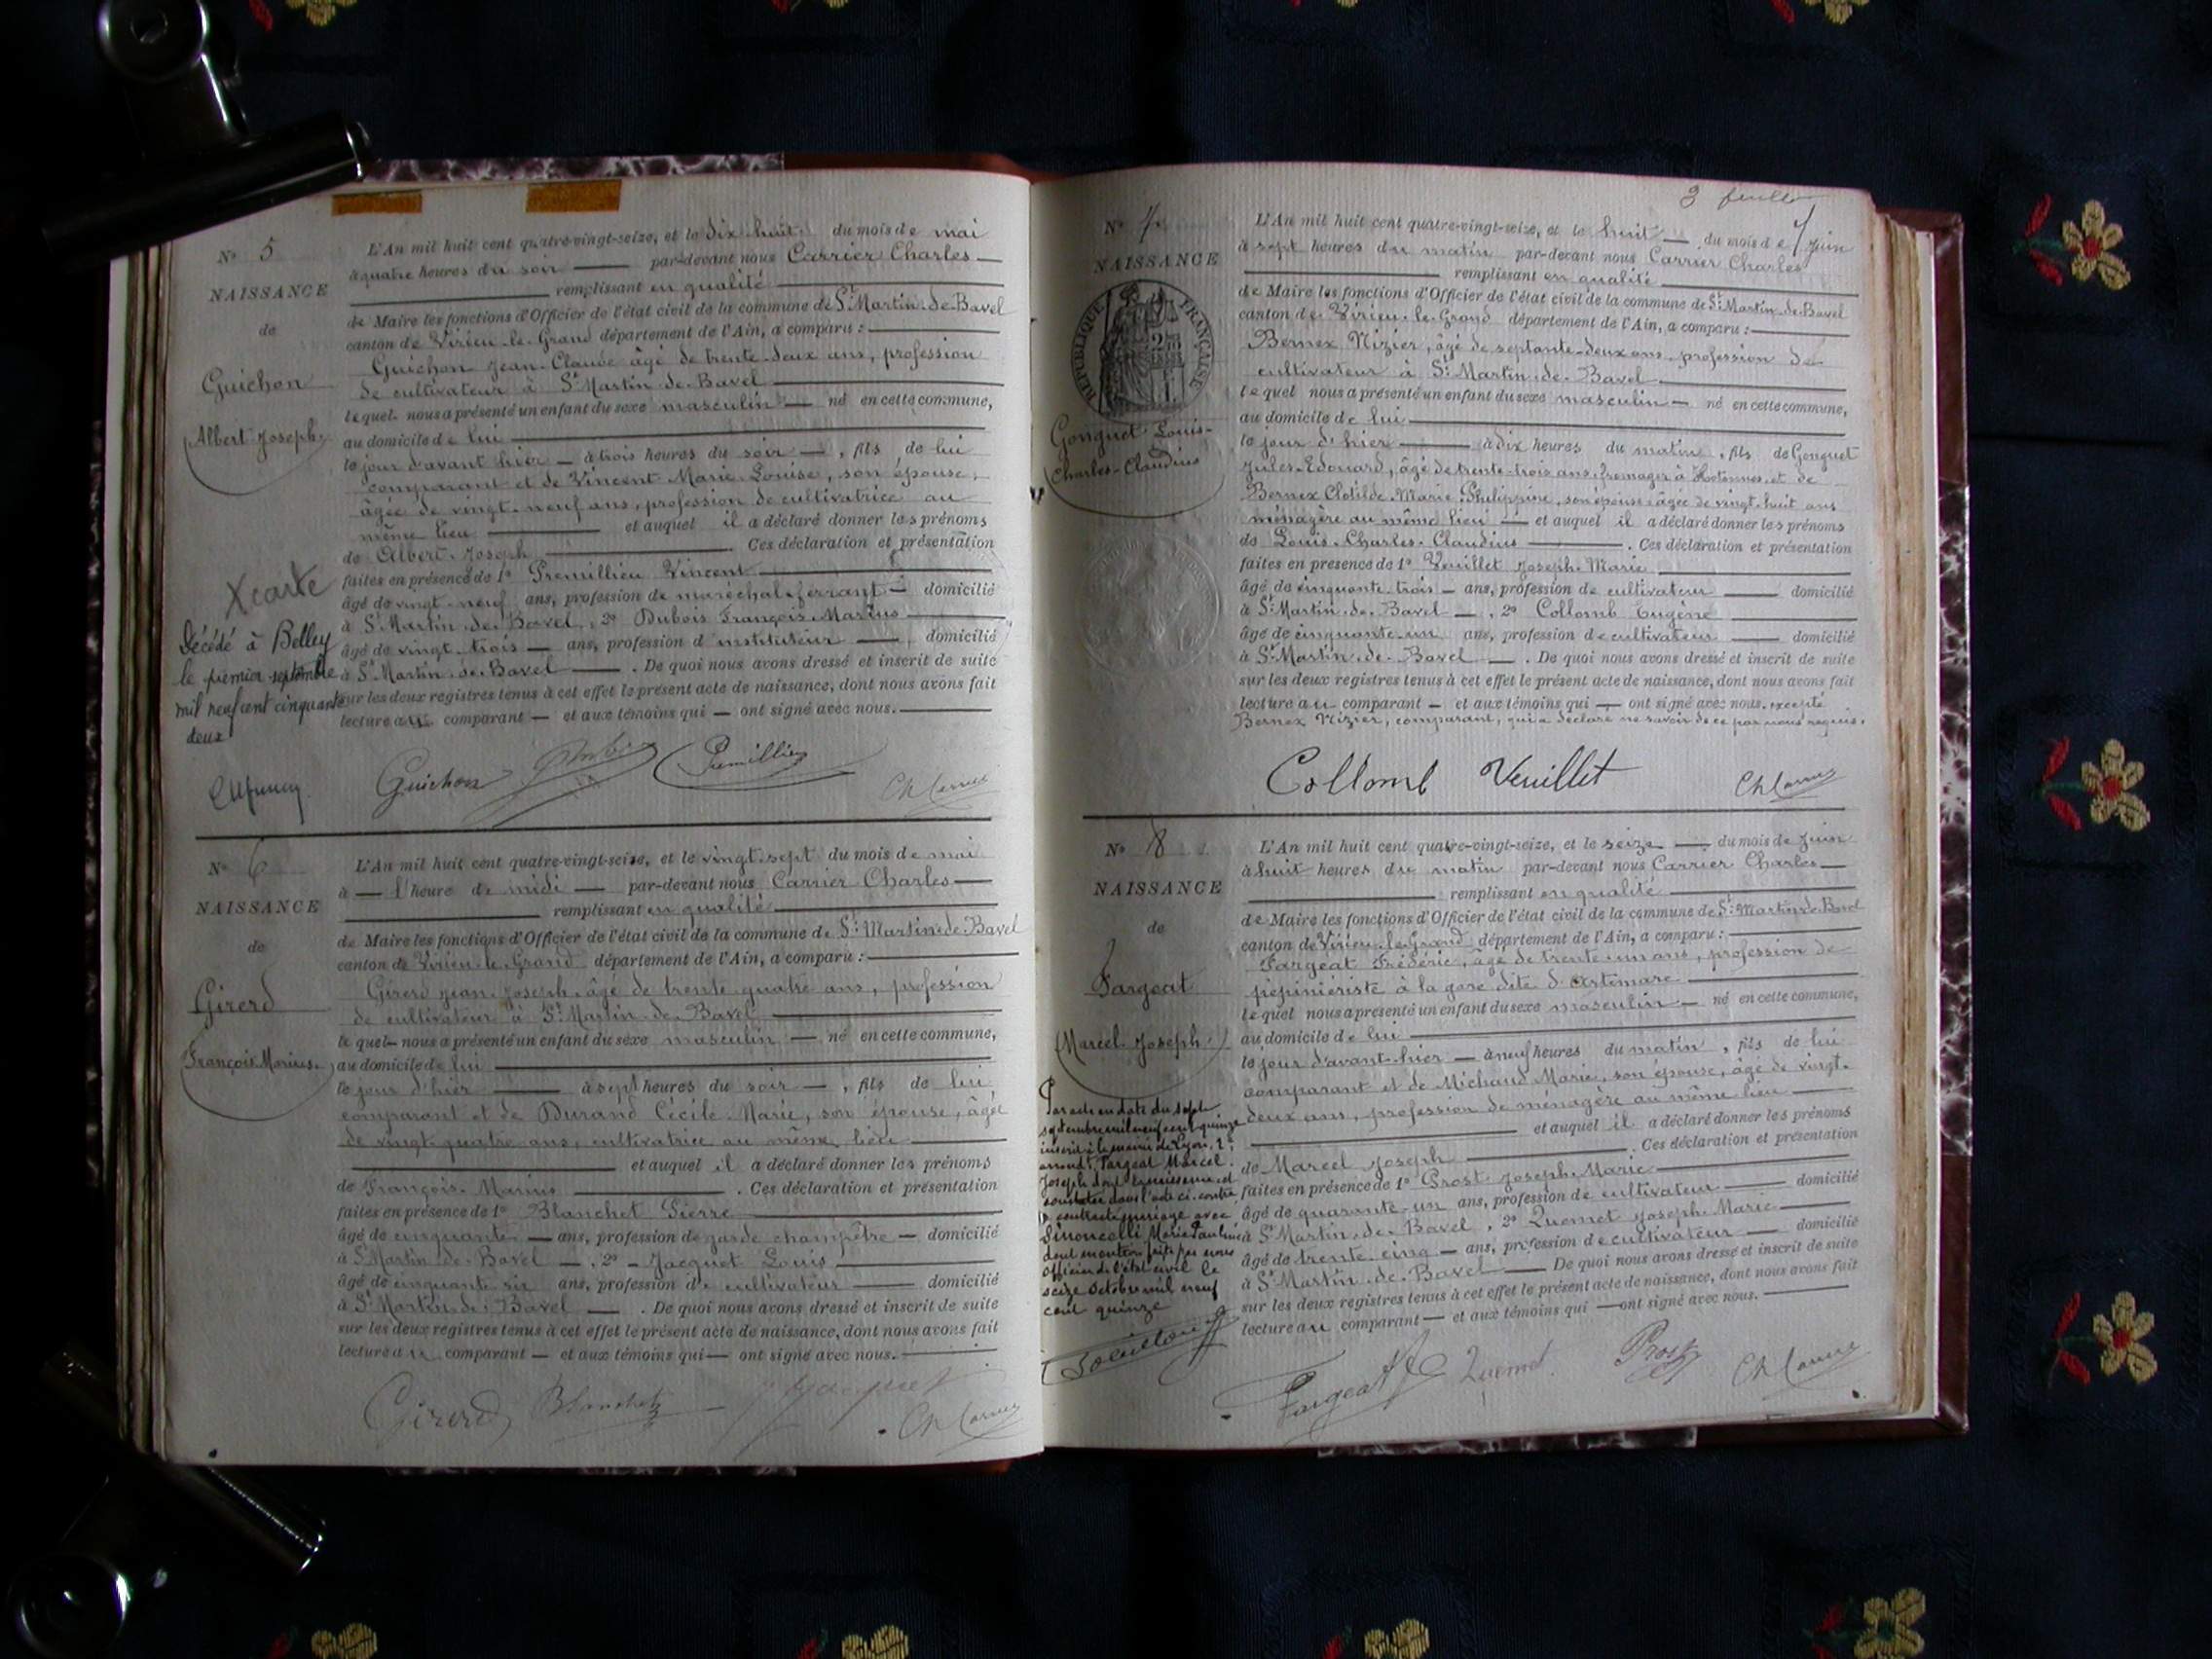 Nº 5
NAISSANCE
de
Guichon
Albert Joseph
X carte
Décédé à Belley
le premier septembre
mil neuf cent cinquante
deux
L'An mil huit cent quatre-vingt-seize, et le dix-huit du mois de mai
à quatre heures du soir — par-devant nous Carrier Charles —
remplissant en qualité
de Maire les fonctions d'Officier de l'état civil de la commune de St Martin-de-Bavel
canton de Virieu-le-Grand département de l'Ain, a comparu :
Guichon Jean-Claude âgé de trente-deux ans, profession
de cultivateur à St Martin-de-Bavel
lequel nous a présenté un enfant du sexe masculin — né en cette commune,
au domicile de lui
le jour d'avant hier — à trois heures du soir —, fils de lui
comparant et de Vincent Marie-Louise, son épouse,
âgée de vingt-neuf ans, profession de cultivatrice au
même lieu — et auquel il a déclaré donner les prénoms
de Albert-Joseph — . Ces déclaration et présentation
faites en présence de 1º Premillieu Vincent
âgé de vingt-neuf ans, profession de maréchal-ferrant — domicilié
à St Martin-de-Bavel, 2º Dubois François-Marius
âgé de vingt-trois — ans, profession d'instituteur — domicilié
à St Martin-de-Bavel — . De quoi nous avons dressé et inscrit de suite
sur les deux registres tenus à cet effet le présent acte de naissance, dont nous avons fait
lecture au comparant — et aux témoins qui — ont signé avec nous.
Guichon Premillieu Ch Carrier
Nº 6
NAISSANCE
de
Girerd
François-Marius
L'An mil huit cent quatre-vingt-seize, et le vingt-sept du mois de mai
à — l'heure de midi — par-devant nous Carrier Charles —
remplissant en qualité
de Maire les fonctions d'Officier de l'état civil de la commune de St Martin-de-Bavel
canton de Virieu-le-Grand département de l'Ain, a comparu :
Girerd Jean-Joseph, âgé de trente-quatre ans, profession
de cultivateur à St Martin-de-Bavel
lequel nous a présenté un enfant du sexe masculin — né en cette commune,
au domicile de lui
le jour d'hier — à sept heures du soir —, fils de lui
comparant et de Durand Cécile-Marie, son épouse, âgée
de vingt-quatre ans, cultivatrice au même lieu
et auquel il a déclaré donner les prénoms
de François-Marius — . Ces déclaration et présentation
faites en présence de 1º Blanchet Pierre
âgé de cinquante — ans, profession de garde champêtre — domicilié
à St Martin-de-Bavel —, 2º — Jacquet Louis
âgé de cinquante-six ans, profession de cultivateur — domicilié
à St Martin-de-Bavel — . De quoi nous avons dressé et inscrit de suite
sur les deux registres tenus à cet effet le présent acte de naissance, dont nous avons fait
lecture au comparant — et aux témoins qui — ont signé avec nous.
Girerd Blanchet Jacquet Ch Carrier
3 feuillet
Nº 7
NAISSANCE
RÉPUBLIQUE FRANÇAISE
Gonguet Louis-
Charles-Claudius
L'An mil huit cent quatre-vingt-seize, et le huit — du mois de juin
à sept heures du matin par-devant nous Carrier Charles
remplissant en qualité
de Maire les fonctions d'Officier de l'état civil de la commune de St Martin-de-Bavel
canton de Virieu-le-Grand département de l'Ain, a comparu :
Bernex Nizier, âgé de septante-deux ans, profession de
cultivateur à St Martin-de-Bavel
lequel nous a présenté un enfant du sexe masculin — né en cette commune,
au domicile de lui
le jour d'hier — à dix heures du matin, fils de Gonguet
Jules-Edouard, âgé de trente-trois ans, fromager à Hotonnes, et de
Bernex Clotilde-Marie-Philippine, son épouse, âgée de vingt-huit ans
ménagère au même lieu — et auquel il a déclaré donner les prénoms
de Louis-Charles-Claudius — . Ces déclaration et présentation
faites en présence de 1º Veuillet Joseph-Marie
âgé de cinquante-trois — ans, profession de cultivateur — domicilié
à St Martin-de-Bavel —, 2º Collomb Eugène
âgé de cinquante-un ans, profession de cultivateur — domicilié
à St Martin-de-Bavel — . De quoi nous avons dressé et inscrit de suite
sur les deux registres tenus à cet effet le présent acte de naissance, dont nous avons fait
lecture au comparant — et aux témoins qui — ont signé avec nous, excepté
Bernex Nizier, comparant, qui a déclaré ne savoir de ce par nous requis.
Collomb Veuillet Ch Carrier
Nº 8
NAISSANCE
de
Fargeat
Marcel-Joseph
Par acte en date du sept
septembre mil neuf cent quinze
inscrit à la mairie de Lyon, 2e
arrondt, Fargeat Marcel
Joseph dont la naissance est
constatée dans l'acte ci-contre
a contracté mariage avec
Limoncelli Marie Pauline
dont mention faite par nous
officier de l'état civil le
seize octobre mil neuf
cent quinze
L'An mil huit cent quatre-vingt-seize, et le seize — du mois de juin
à huit heures du matin par-devant nous Carrier Charles —
remplissant en qualité
de Maire les fonctions d'Officier de l'état civil de la commune de St Martin-de-Bavel
canton de Virieu-le-Grand département de l'Ain, a comparu :
Fargeat Frédéric, âgé de trente-un ans, profession de
pépiniériste à la gare dite d'Artemare
lequel nous a présenté un enfant du sexe masculin — né en cette commune,
au domicile de lui
le jour d'avant-hier — à neuf heures du matin, fils de lui
comparant et de Michaud Marie, son épouse, âgé de vingt-
deux ans, profession de ménagère au même lieu
et auquel il a déclaré donner les prénoms
de Marcel Joseph — . Ces déclaration et présentation
faites en présence de 1º Prost Joseph-Marie
âgé de quarante-un ans, profession de cultivateur — domicilié
à St Martin-de-Bavel, 2º Quemet Joseph-Marie
âgé de trente-cinq — ans, profession de cultivateur — domicilié
à St Martin-de-Bavel — De quoi nous avons dressé et inscrit de suite
sur les deux registres tenus à cet effet le présent acte de naissance, dont nous avons fait
lecture au comparant — et aux témoins qui — ont signé avec nous.
Fargeat Quemet Prost Ch Carrier